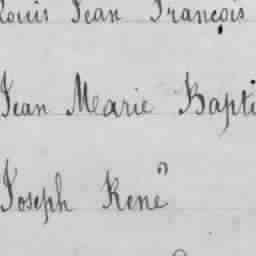 Louis Jean François
Jean Marie Bapti
Joseph René